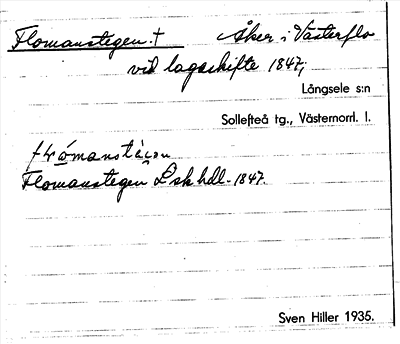 Flomanstegen. † Åker i Västerflo
vid lagaskifte 1847;
Långsele s:n
Sollefteå tg., Västernorrl. l.
Flomanstegen L sk hdl. 1847.
Sven Hiller 1935.